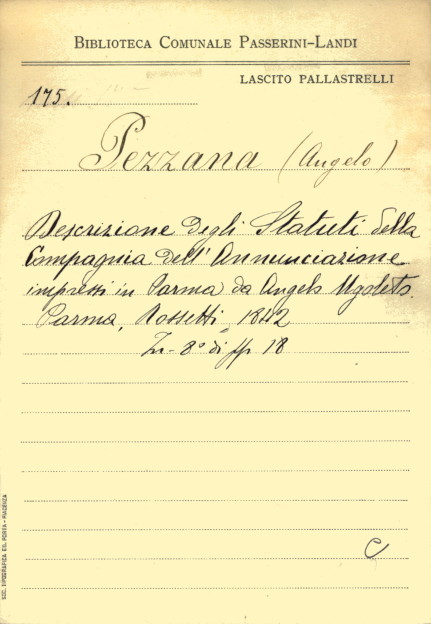 BIBLIOTECA COMUNALE PASSERINI-LANDI
LASCITO PALLASTRELLI
175.
Pezzana (Angelo)
Descrizione degli Statuti della
Compagnia dell'Annunciazione
impressi in Parma da Angelo Ugoleto.
Parma, Rossetti, 1842
In-8° di pp 18
C
SOC. TIPOGRAFICA ED. PORTA - PIACENZA